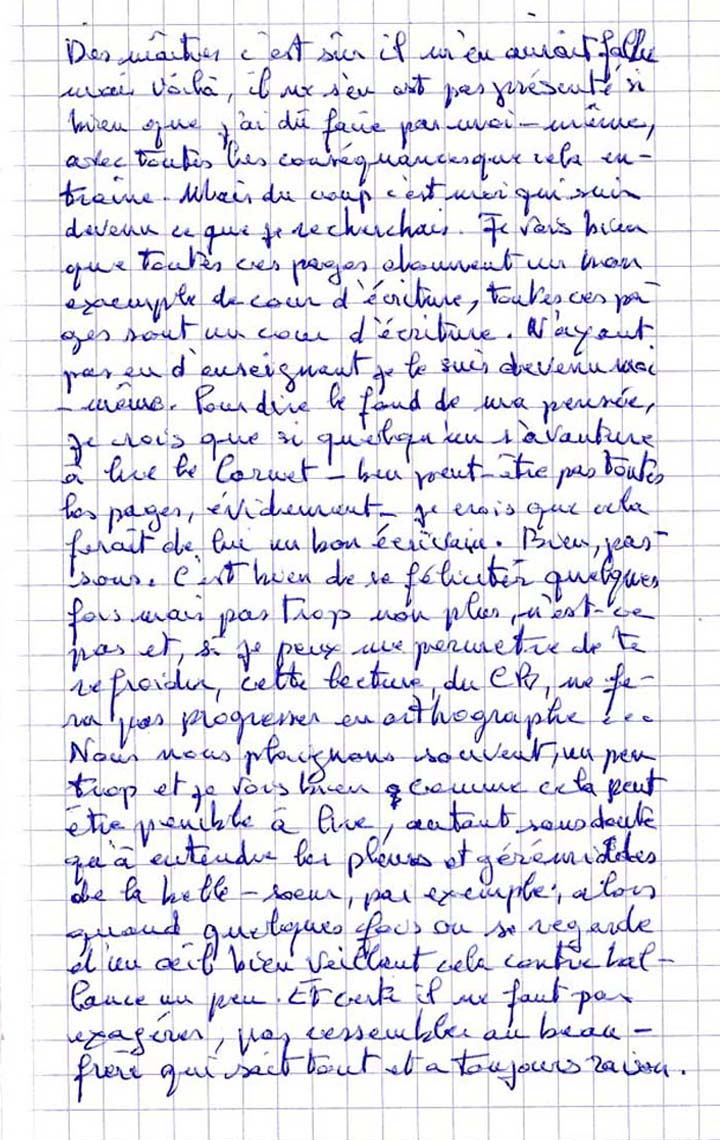 Des maîtres c'est sûr il m'en aurait fallu
mais voilà, il ne s'en est pas présenté si
bien que j'ai dû faire par moi-même,
avec toutes les conséquances que cela en-
traîne. Mais du coup c'est moi qui suis
devenu ce que je recherchais. Je vois bien
que toutes ces pages donnent un bon
exemple de cour d'écriture, toutes ces pa-
ges sont un cour d'écriture. N'ayant
pas eu d'enseignant je le suis devenu moi
-même. Pour dire le fond de ma pensée,
je crois que si quelqu'un s'avanture
à lire le Carnet - ben peut-être pas toutes
les pages, évidemment - je crois que cela
ferait de lui un bon écrivain. Bien, pas-
sons. C'est bien de se féliciter quelques
fois mais pas trop non plus, n'est-ce
pas et, si je peux me permetre de te
refroidir, cette lecture, du CB, ne fe-
ra pas progresser en orthographe ...
Nous nous plaignons souvent, un peu
trop et je vois bien comme cela peut
être penible à lire, autant sans doute
qu'à entendre les pleurs et gérémiades
de la belle-soeur, par exemple, alors
quand quelques fois on se regarde
d'un oeil bien veillant cela contre bal-
lance un peu. Et certe il ne faut pas
exagérer, pas ressembler au beau-
frère qui sait tout et a toujours raison.